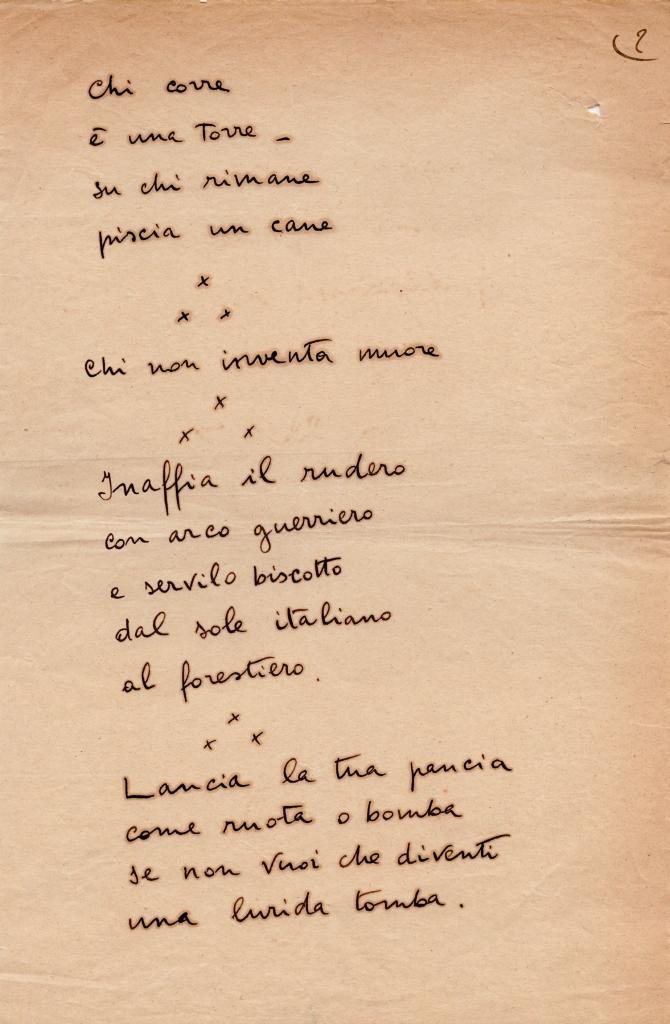 2
Chi corre
è una Torre -
su chi rimane
piscia un cane
x
x x
Chi non inventa muore
x
x x
Inaffia il rudero
con arco guerriero
e servilo biscotto
dal sole italiano
al forestiero.
x
x x
Lancia la tua pancia
come ruota o bomba
se non vuoi che diventi
una lurida tomba.